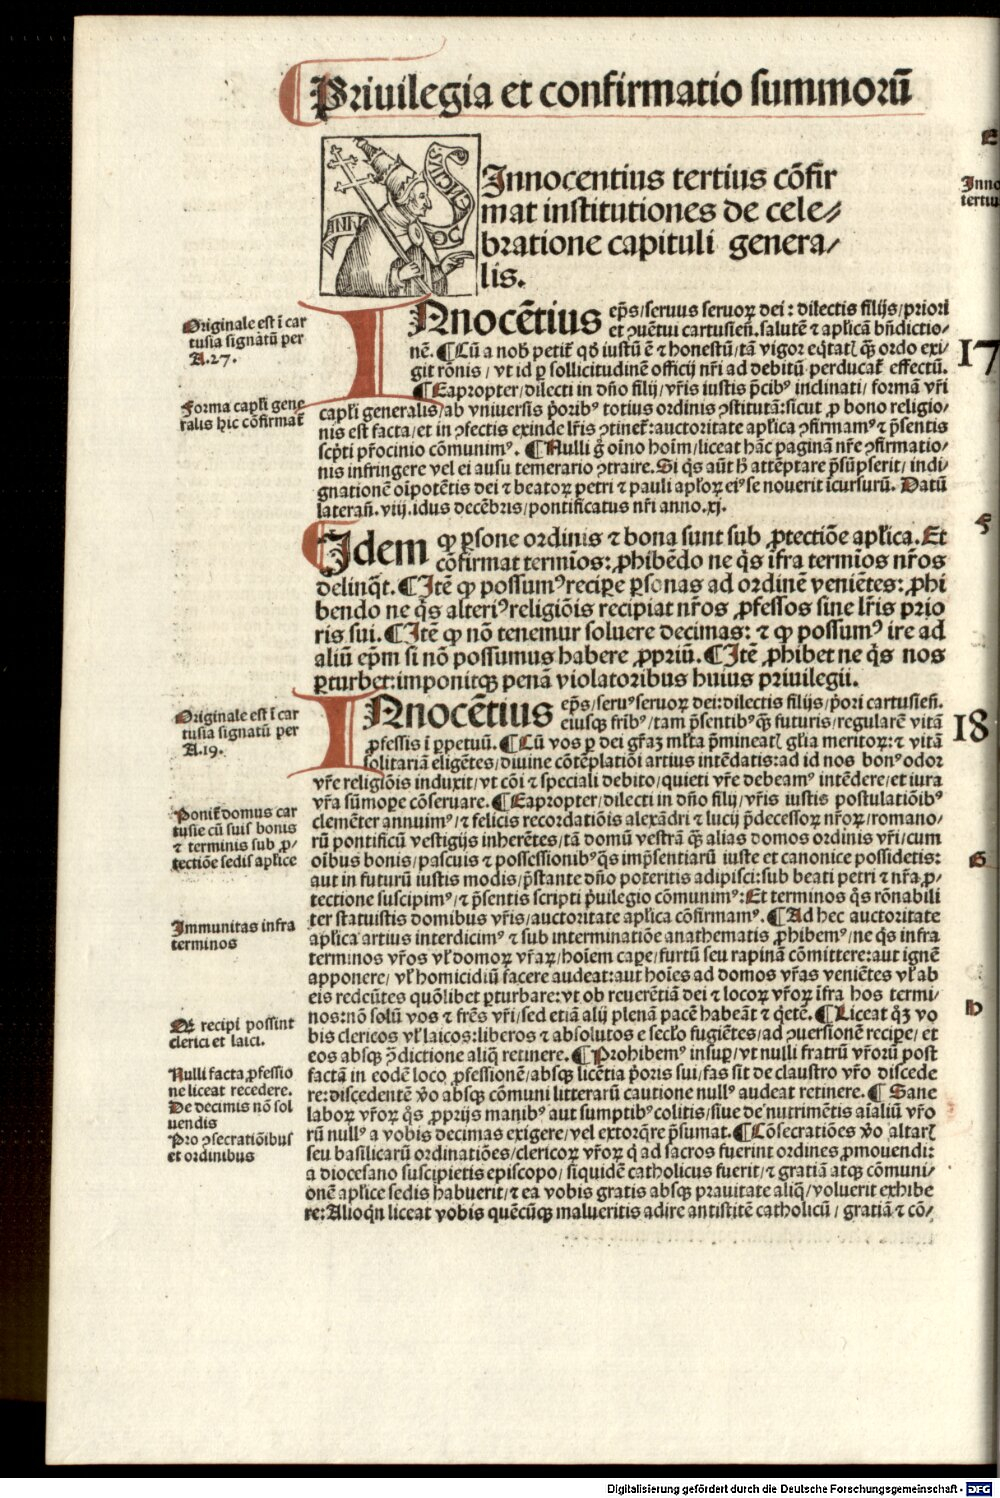 Priuilegia et confirmatio summorū
INNO
CENCIVS
Innocentius tertius cōfir
mat institutiones de cele⸗
bratione capituli genera⸗
lis.
Originale est ī car
tusia signatū per
A.27.
INnocētius ep̄s/seruus seruoꝝ dei: dilectis filijs/priori
et ꝯuētui cartusień. salutē ⁊ apl̄icā bn̄dictio⸗
nē. ¶Cū a nob̄ petit᷑ qd̓ iustū ē ⁊ honestū/tā vigor eq̇tatꝭ qꝫ̄ ordo exi⸗
git rōnis/vt id ꝑ sollicitudinē officij nr̄i ad debitū perducat᷑ effectū.
17
¶Eapropter/dilecti in dn̄o filij/vr̄is iustis p̄cibꝰ inclinati/formā vr̄i
Forma capl̄i gene
ralis hic cōfirmat᷑
capl̄i generalis/ab vniuersis p̓oribꝰ totius ordinis ꝯstitutā: sicut ꝓ bono religio⸗
nis est facta/et in ꝯfectis exinde lr̄is ꝯtinet᷑: auctoritate apl̄ica ꝯfirmamꝰ ⁊ p̄sentis
scp̓ti pr̓ocinio cōmunimꝰ. ¶Nulli g̊ oīno hoīm/liceat hāc paginā nr̄e ꝯfirmatio⸗
nis infringere vel ei ausu temerario ꝯtraire. Si q̇s aūt h̓ attēptare p̄sūpserit/indi⸗
gnationē oīpotētis dei ⁊ beatoꝝ petri ⁊ pauli apl̄oꝝ eiꝰ se nouerit īcursurū. Datū
laterań. viij. idus decēbris/pontificatus nr̄i anno. xj.
Idem ꝙ ꝑsone ordinis ⁊ bona sunt sub ꝓtectiōe apl̄ica. Et
cōfirmat termīos: ꝓhibēdo ne q̇s īfra termīos nr̄os
delinq̇t. ¶Itē ꝙ possumꝰ recipe ꝑsonas ad ordinē veniētes: ꝓhi
bendo ne q̇s alteriꝰ religiōis recipiat nr̄os ꝓfessos sine lr̄is prio
ris sui. ¶Itē ꝙ nō tenemur soluere decimas: ⁊ ꝙ possumꝰ ire ad
aliū ep̄m si nō possumus habere ꝓpriū. ¶Itē ꝓhibet ne q̇s nos
ꝑturbet: imponitqꝫ penā violatoribus huius priuilegii.
Originale est ī car
tusia signatū per
A.19.
INnocētius ep̄s/seruꝰ seruoꝝ dei: dilectis filijs/p̓ori cartusień.
eiusqꝫ fr̄ibꝰ/tam p̄sentibꝰ qꝫ̄ futuris/regularē vitā
18
ꝓfessis ī ꝑpetuū. ¶Cū vos ꝑ dei gr̄aꝫ ml̄ta p̄mineatꝭ gl̄ia meritoꝝ: ⁊ vitā
solitariā eligētes/diuine cōtēplatiōi artius intēdatis: ad id nos bonꝰ odor
vr̄e religiōis induxit/vt cōi ⁊ speciali debito/quieti vr̄e debeamꝰ intēdere/et iura
vr̄a sūmope cōseruare. ¶Eapropter/dilecti in dn̄o filij/vr̄is iustis postulatiōibꝰ
Ponit᷑ domus car
tusie cū suis bonis
⁊ terminis sub ꝓ⸗
tectiōe sedis apl̄ice
clemēter annuimꝰ/⁊ felicis recordatiōis alexādri ⁊ lucij p̄decessoꝝ nr̄oꝝ/romano⸗
rū pontificū vestigijs inherētes/tā domū vestrā qꝫ̄ alias domos ordinis vr̄i/cum
oībus bonis/pascuis ⁊ possessionibꝰ q̇s imp̄sentiarū iuste et canonice possidetis:
aut in futurū iustis modis/p̄stante dn̄o poteritis adipisci: sub beati petri ⁊ nr̄a ꝓ⸗
tectione suscipimꝰ/⁊ p̄sentis scripti p̓uilegio cōmunimꝰ: Et terminos q̇s rōnabili
Immunitas infra
terminos
ter statuistis domibus vr̄is/auctoritate apl̄ica cōfirmamꝰ. ¶Ad hec auctoritate
apl̄ica artius interdicimꝰ ⁊ sub interminatiōe anathematis ꝓhibemꝰ/ne q̇s infra
terminos vr̄os vl̓ domoꝝ vr̄aꝝ/hoīem cape/furtū seu rapinā cōmittere: aut ignē
apponere/vl̓ homicidiū facere audeat: aut hoīes ad domos vr̄as veniētes vl̓ ab
eis redeūtes quōlibet ꝑturbare: vt ob reuerētiā dei ⁊ locoꝝ vr̄oꝝ īfra hos termi⸗
nos: nō solū vos ⁊ fr̄es vr̄i/sed etiā alij plenā pacē habeāt ⁊ q̇etē. ¶Liceat qꝫ vo
Qd̓ recipi possint
clerici et laici.
bis clericos vl̓ laicos: liberos ⁊ absolutos e secl̄o fugiētes/ad ꝯuersionē recipe/et
eos absqꝫ ꝯ̄dictione aliq̄ retinere. ¶Prohibemꝰ insuꝑ/vt nulli fratrū vr̄orū post
Nulli facta ꝓfessio
ne liceat recedere.
factā in eodē loco ꝓfessionē/absqꝫ licētia p̓oris sui/fas sit de claustro vr̄o discede
re: discedentē v̓o absqꝫ cōmuni litterarū cautione nullꝰ audeat retinere. ¶Sane
De decimis nō sol
uendis
laboꝝ vr̄oꝝ q̇s ꝓprijs manibꝰ aut sumptibꝰ colitis/siue de nutrimētis aīaliū vr̄o
rū nullꝰ a vobis decimas exigere/vel extorq̄re p̄sumat. ¶Cōsecratiōes v̓o altarꝭ
Pro ꝯsecratiōibus
et ordinibus
seu basilicarū ordinatiōes/clericoꝝ vr̄oꝝ q̇ ad sacros fuerint ordines ꝓmouendi:
a diocesano suscipietis episcopo/siquidē catholicus fuerit/⁊ gratiā atqꝫ cōmuni⸗
onē apl̄ice sedis habuerit/⁊ ea vobis gratis absqꝫ prauitate aliq̄/voluerit exhibe
re: Alioqn̄ liceat vobis quēcūqꝫ malueritis adire antistitē catholicū/gratiā ⁊ cō⸗
Inno
tertiu
Digitalisierung gefördert durch die Deutsche Forschungsgemeinschaft - DFG